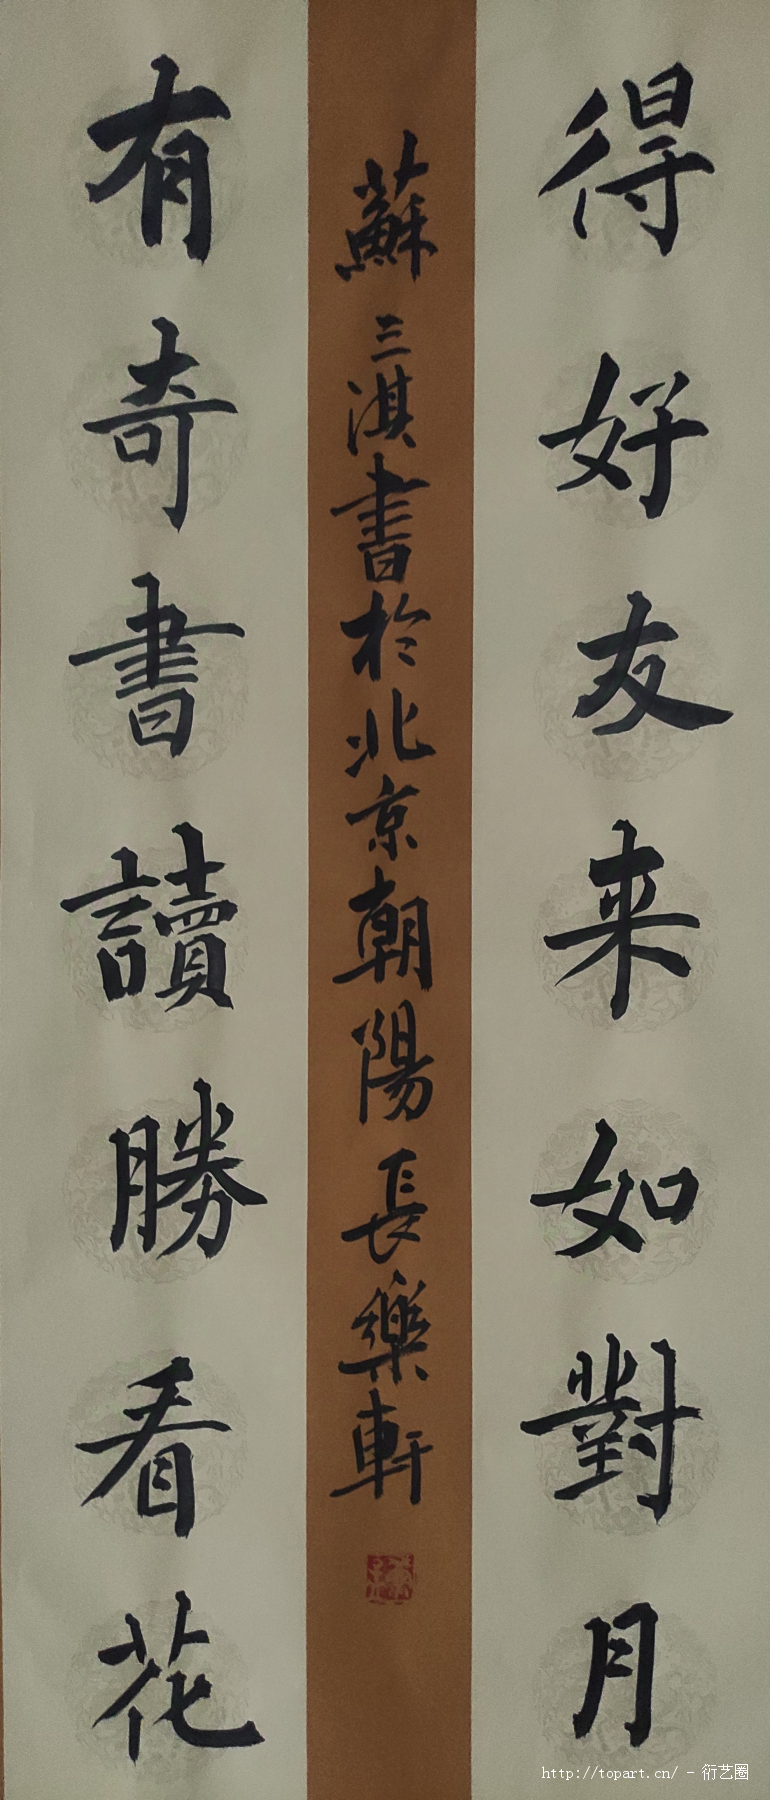 得好友来如對月
有奇書讀勝看花
蘇三淇書於北京朝陽長樂軒
http://topart.cn/ - 衍艺圈